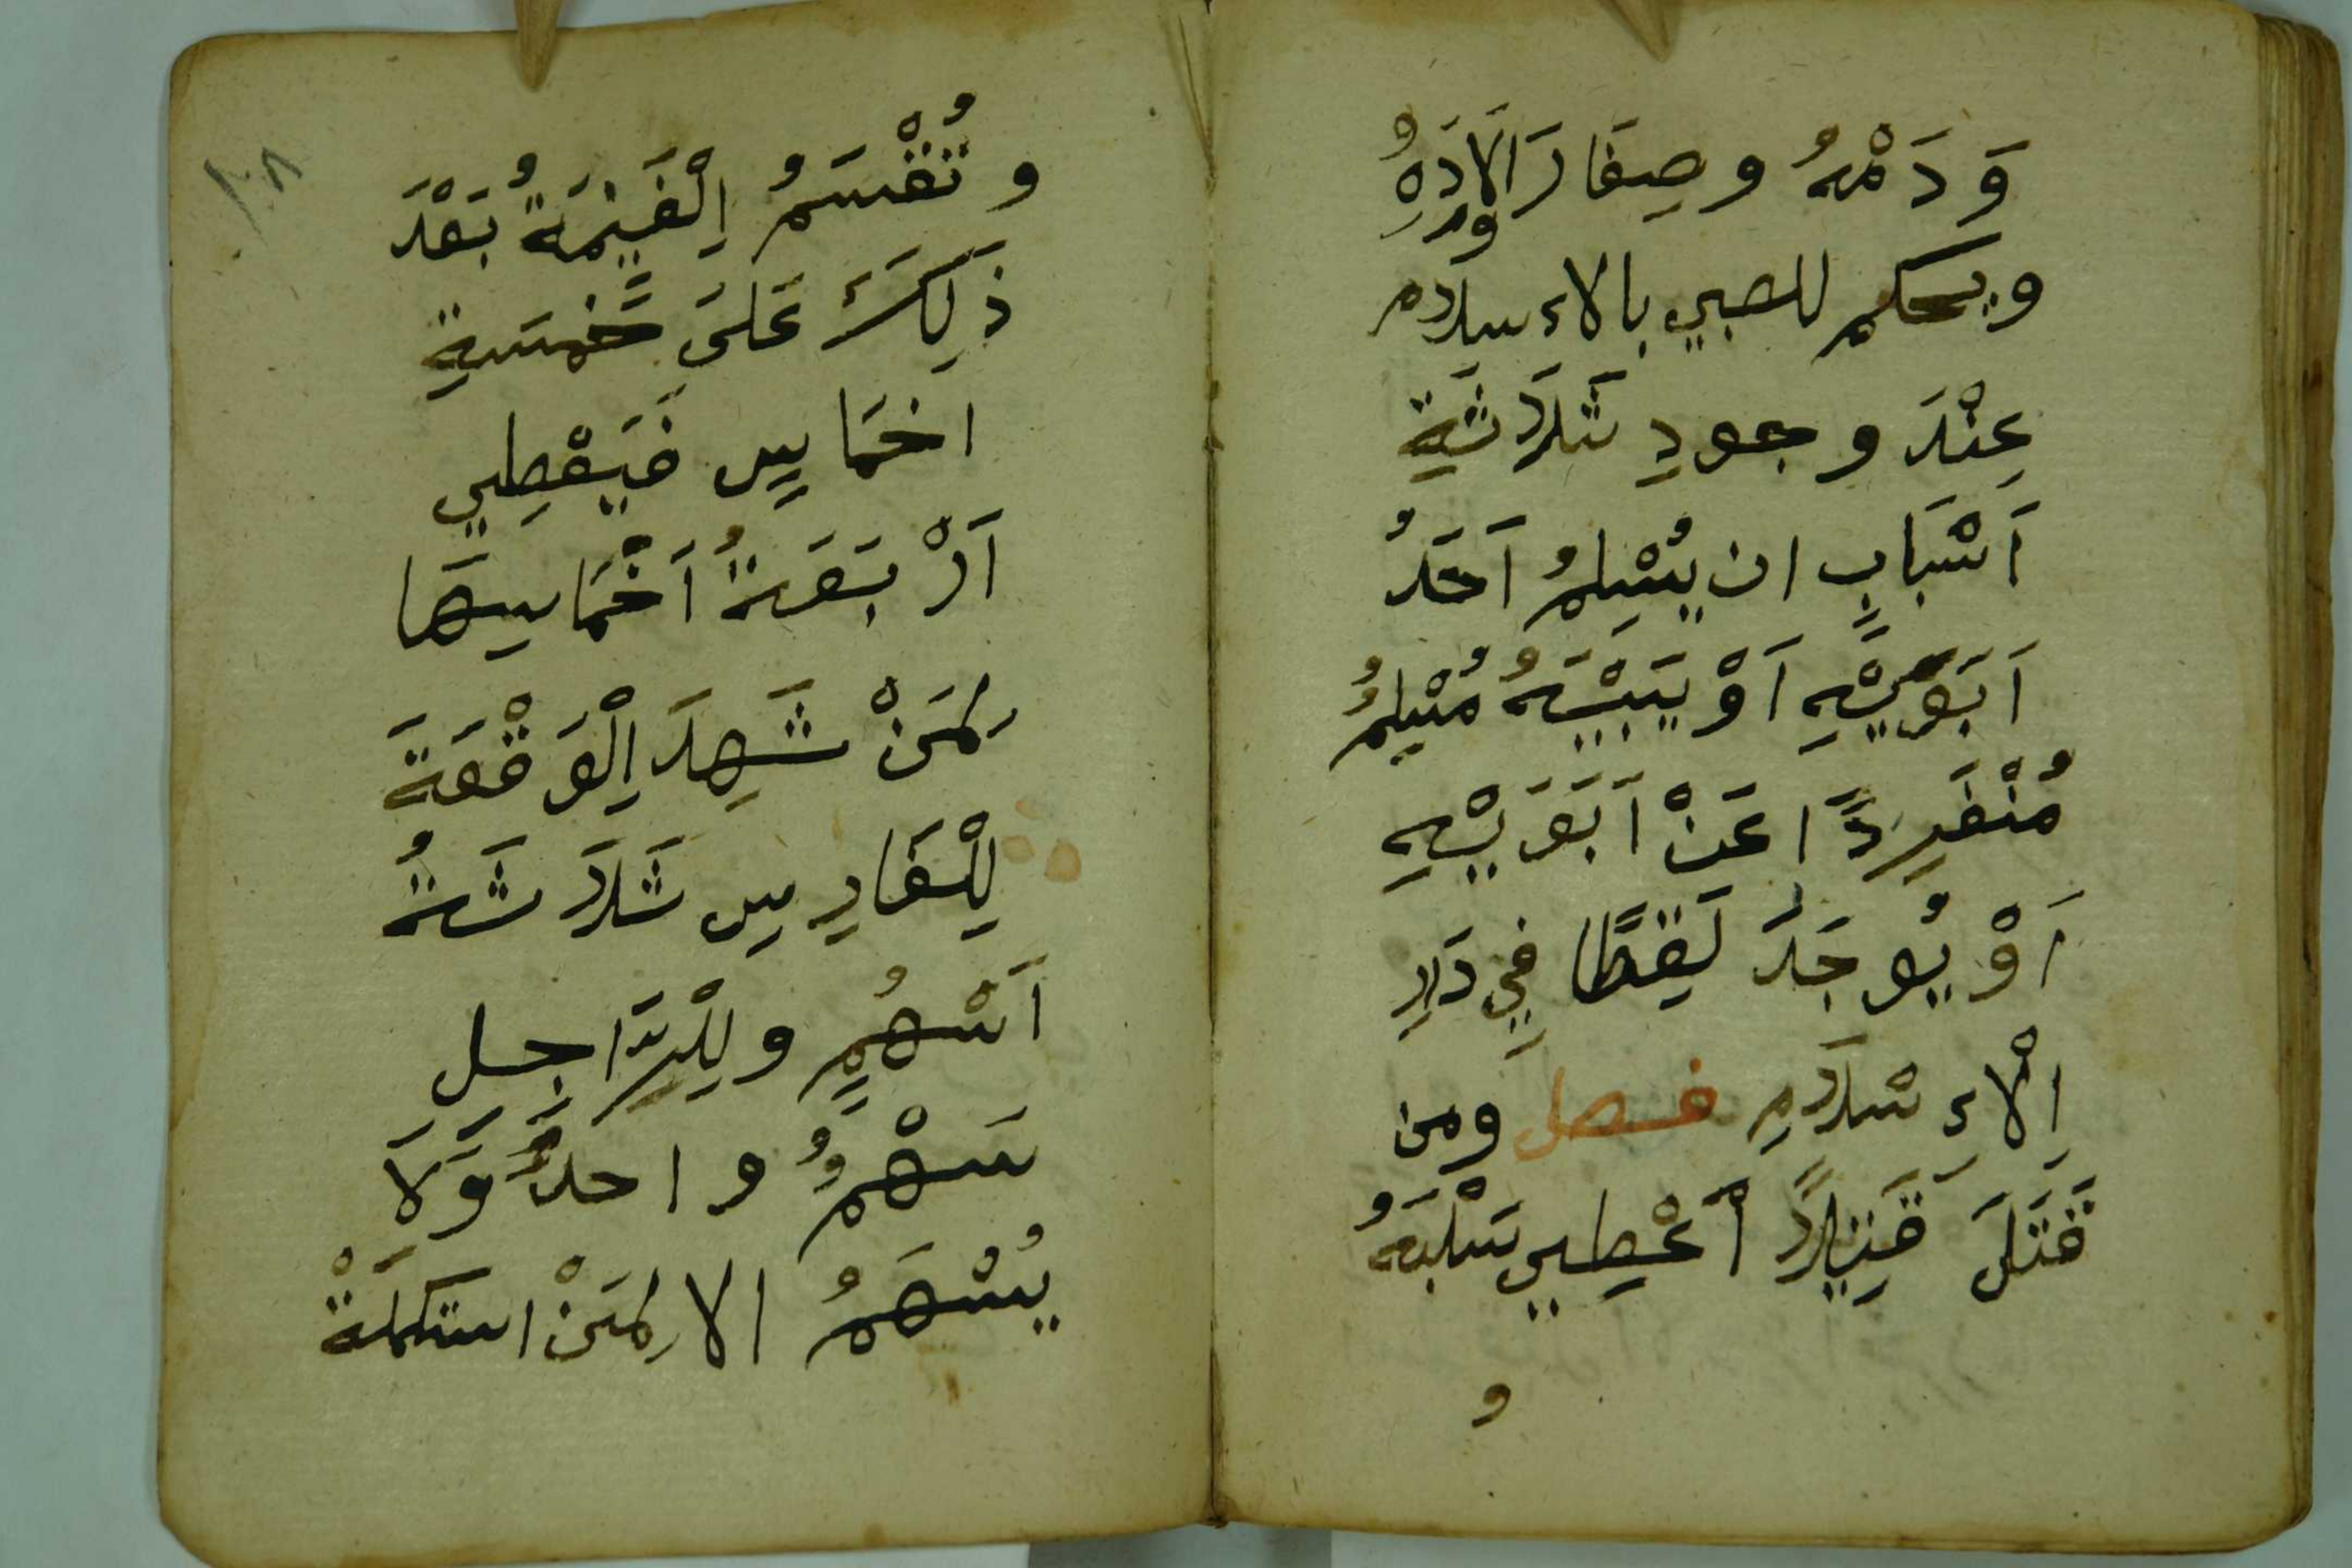 وَدَمْهُ وصِغَارَ اَلَادَهُ
ور
ويحكم للصبي بالاءسلام
عِنْدَ وجودِ ثَلَاثَةِ
اَسْبَابٍ ان يُسْلِمُ اَحَدُ
اَبَوَيْهِ اَوْ يَبْيَهُ مُسْلِمُ
مُنْفَرِدًا عَنْ اَبَوَيْهِ
اَوْ يُوجَدَ لَقِطًا فِي دَارِ
اِلْاءِسْلَامِ فصل ومن
قَتَلَ قَتِيلًا اَعْطِيي سَلْبَهُ
و
١٠٨
وتُقْسَمُ اِلْغَنِيمَةُ بَعْدَ
ذَلِكَ عَلَى خَمْسَةِ
اخمَاسٍ فَيَعْطِي
اَرْبَعَةُ اَخْمَاسِهَا
لِمَنْ شَهِدَ اِلْوَقْعَةَ
لِلْفَارِسِ ثَلَاثَةُ
اَسْهُمٍ ولِلْرَّاجِل
سَهْمٌ واحدٌ وَلَا
يُسْهَمُ الا لِمَنْ استكملَةْ